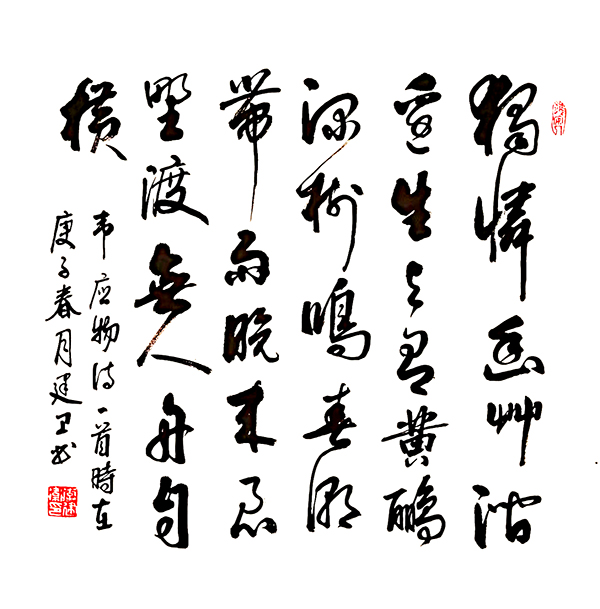 獨憐幽艸澗
邊生上有黄鸝
深樹鳴春潮
帶雨晚來急
野渡無人舟自
横
韦应物诗一首時在
庚子春月建卫书